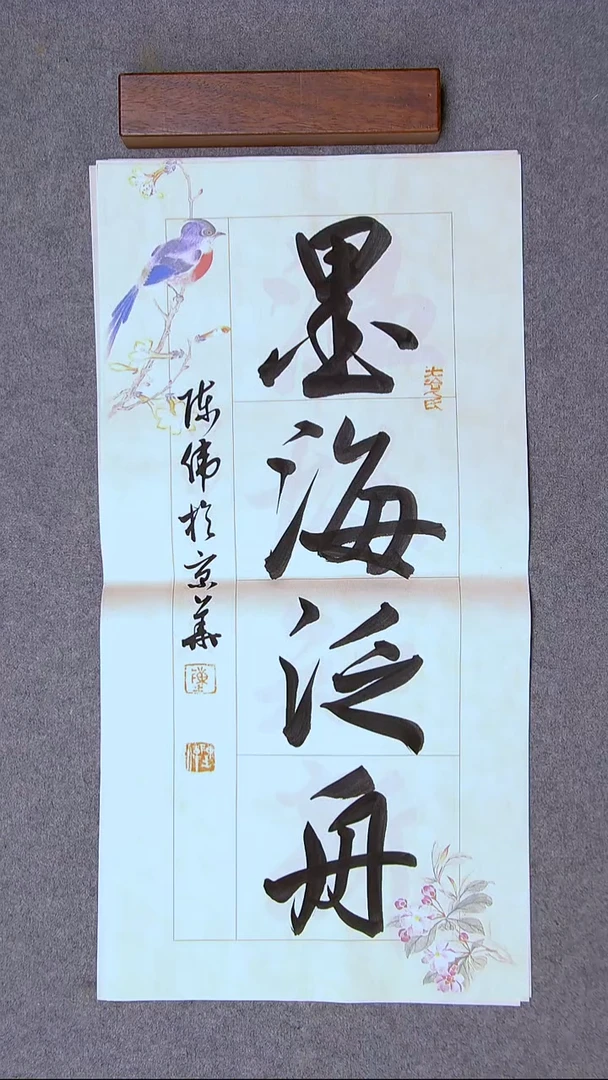 墨海泛舟
陈伟於京華